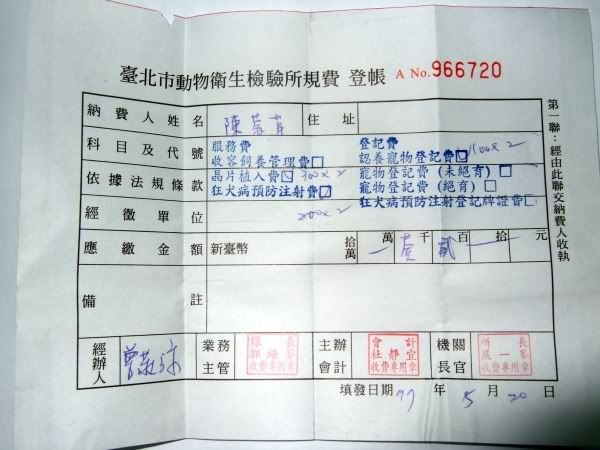 臺北市動物衛生檢驗所規費 登帳 A No.966720
納費人姓名 陳 住址
科目及代號
服務費
收容飼養管理費□
晶片植入費☑ 300×2
狂犬病預防注射費□
200×2
登記費
認養寵物登記費☑ 100×2
寵物登記費(未絕育)□
寵物登記費(絕育)□
狂犬病預防注射登記牌證費□
依據法規條款
經徵單位
應繳金額 新臺幣 拾萬 萬 壹 千 貳 百 拾 元
備註
經辦人 曾
業務主管 收費專用章
主辦會計 會計 杜靜宜 收費專用章
機關長官 所長 嚴一峯 收費專用章
填發日期 97 年 5 月 20 日
第一聯:經由此聯交納費人收執